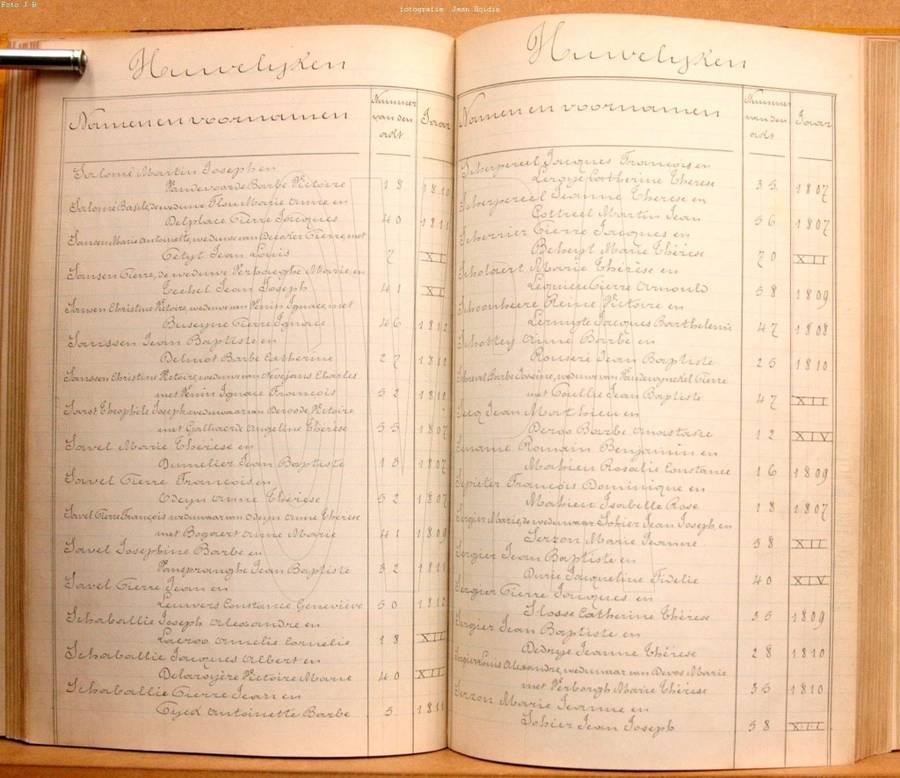 Foto J-B
fotografie Jean
Huwelijken
Namen en voornamen
Nummer van den akt
Jaar
Salomé Martin Joseph en
Vandevoorde Barbe Victoire 18 1810
Salomé Basile, Marie Anne en
Delplace Pierre Jacques 40 1811
Sansen Marie Antoinette, weduwe van Pierre, met
Jean Louis 7 XII
Sansen Pierre, de weduwe Marie en
Jean Joseph 41 XI
Sansen Christine Victoire, weduwe van Ignace, met
Buseyne Pierre Ignace 46 1812
Sanssen Jean Baptiste en
Barbe Catherine 27 1810
Sanssen Christine Victoire, weduwe van Nevejans Charles
met Ignace François 32 1811
Sarot Théophile Joseph weduwaar van Deroo de Victoire
met Angeline Thérèse 53 1807
Savel Marie Thérèse en
Dumelier Jean Baptiste 13 1807
Savel Pierre François en
Odeyn Anne Thérèse 52 1807
Savel Pierre François weduwaar van Odeyn Anne Thérèse
met Bogaert Anne Marie 41 1809
Savel Josephine Barbe en
Jean Baptiste 32 1811
Savel Pierre Jean en
Leuvers Constance Geneviève 50 1812
Schaballie Joseph Alexandre en
Lacroo Amelie Cornelie 18 XII
Schaballie Jacques Albert en
Delaroyère Victoire Marie 40 XII
Schaballie Pierre Jean en
Antoinette Barbe 5 1811
Huwelijken
Namen en voornamen
Nummer van den akt
Jaar
Scherpereel Jacques François en
Catherine Thérèse 35 1807
Scherpereel Jeanne Thérèse en
Cottreel Martin Jean 56 1807
Scherrier Pierre Jacques en
Marie Thérèse 70 XII
Scholaert Marie Thérèse en
Pierre Arnould 58 1809
Schoonheere Reine Victoire en
Lermyte Jacques Barthelemi 47 1808
Schottey Anne Barbe en
Jean Baptiste 25 1810
Barbe weduwe van Vandewynckel Pierre
met Jean Baptiste 47 XII
Jean Mathieu en
Deroo Barbe Anastasie 12 XIV
Romain Benjamin en
Mahieu Rosalie Constance 16 1809
François Dominique en
Mahieu Isabelle Rose 18 1807
Sergier Marie, de weduwaar Sohier Jean Joseph, en
Serzon Marie Jeanne 58 XII
Sergier Jean Baptiste en
Jacqueline Fidelie 40 XIV
Sergier Pierre Jacques en
Slosse Catherine Thérèse 35 1809
Sergier Jean Baptiste en
Jeanne Thérèse 28 1810
Sergier Louis Alexandre, weduwaar van Devos Marie
met Verborgh Marie Thérèse 35 1810
Serzon Marie Jeanne en
Sohier Jean Joseph 58 XII